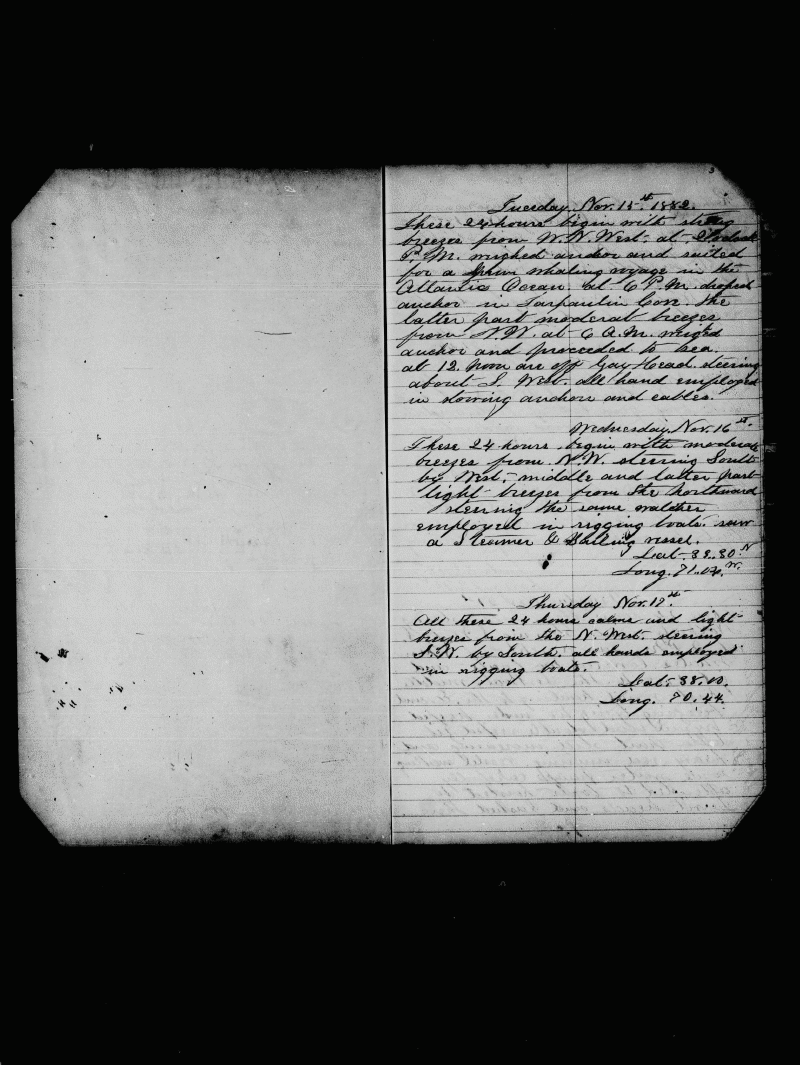 3
Tuesday Nov. 15th 1882.
These 24 hours begin with strong
breezes from W.N. West. at 2 Oclock
P.M. wighed anchor and sailed
for a whaling voyage in the
Atlantic Ocean. at 6 P.M. droped
anchor in Tarpaulin Cove. the
latter part moderat breezes
from N.W. at 6 A.M. weighed
anchor and proceeded to sea.
at 12. Noon are off Gay Head. steering
about S. West. all hand employed
in stowing anchors and cables.
Wednesday Nov. 16th.
These 24 hours begin with moderat
breezes from N.W. steering South
by West. middle and latter part
light breezes from the northward
steering the same watches
employed in rigging boats. saw
a Steamer & Sailing vessel.
Lat. 39..30 N
Long. 71..04. W.
Thursday Nov. 17th.
All these 24 hours calms and light
breezes from the N. West. steering
S.W. by South. all hands employed
in rigging boats.
Lat. 38..10.
Long. 70.44.